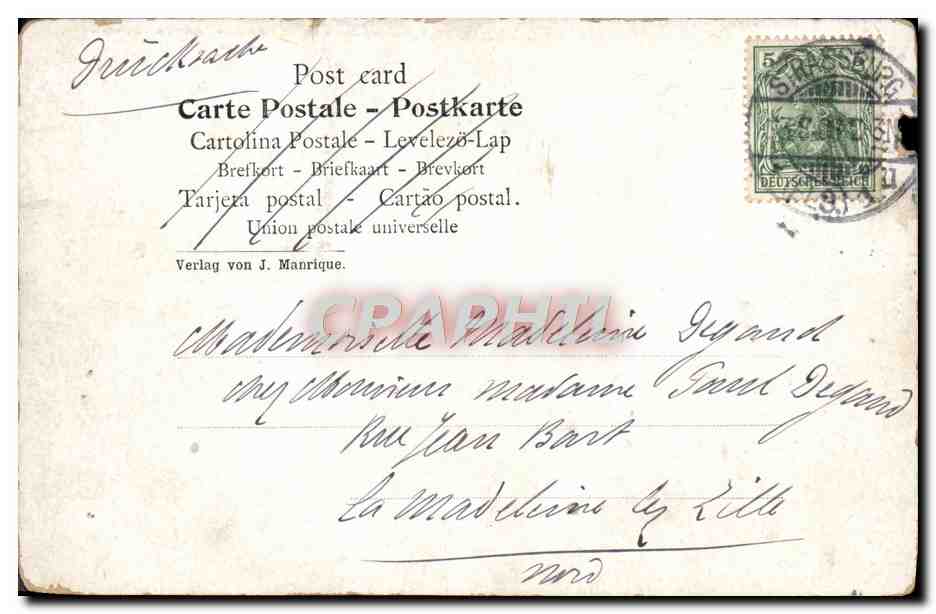 Drucksache
Post card
Carte Postale – Postkarte
Cartolina Postale – Levelező-Lap
Brefkort – Briefkaart – Brevkort
Tarjeta postal - Cartão postal.
Union postale universelle
Verlag von J. Manrique.
5
DEUTSCHES REICH
STRASSBURG
CPAPHIL
Mademoiselle Madeleine Degand
chez Monsieur Madame Paul Degand
Rue Jean Bart
La Madeleine lez Lille
Nord